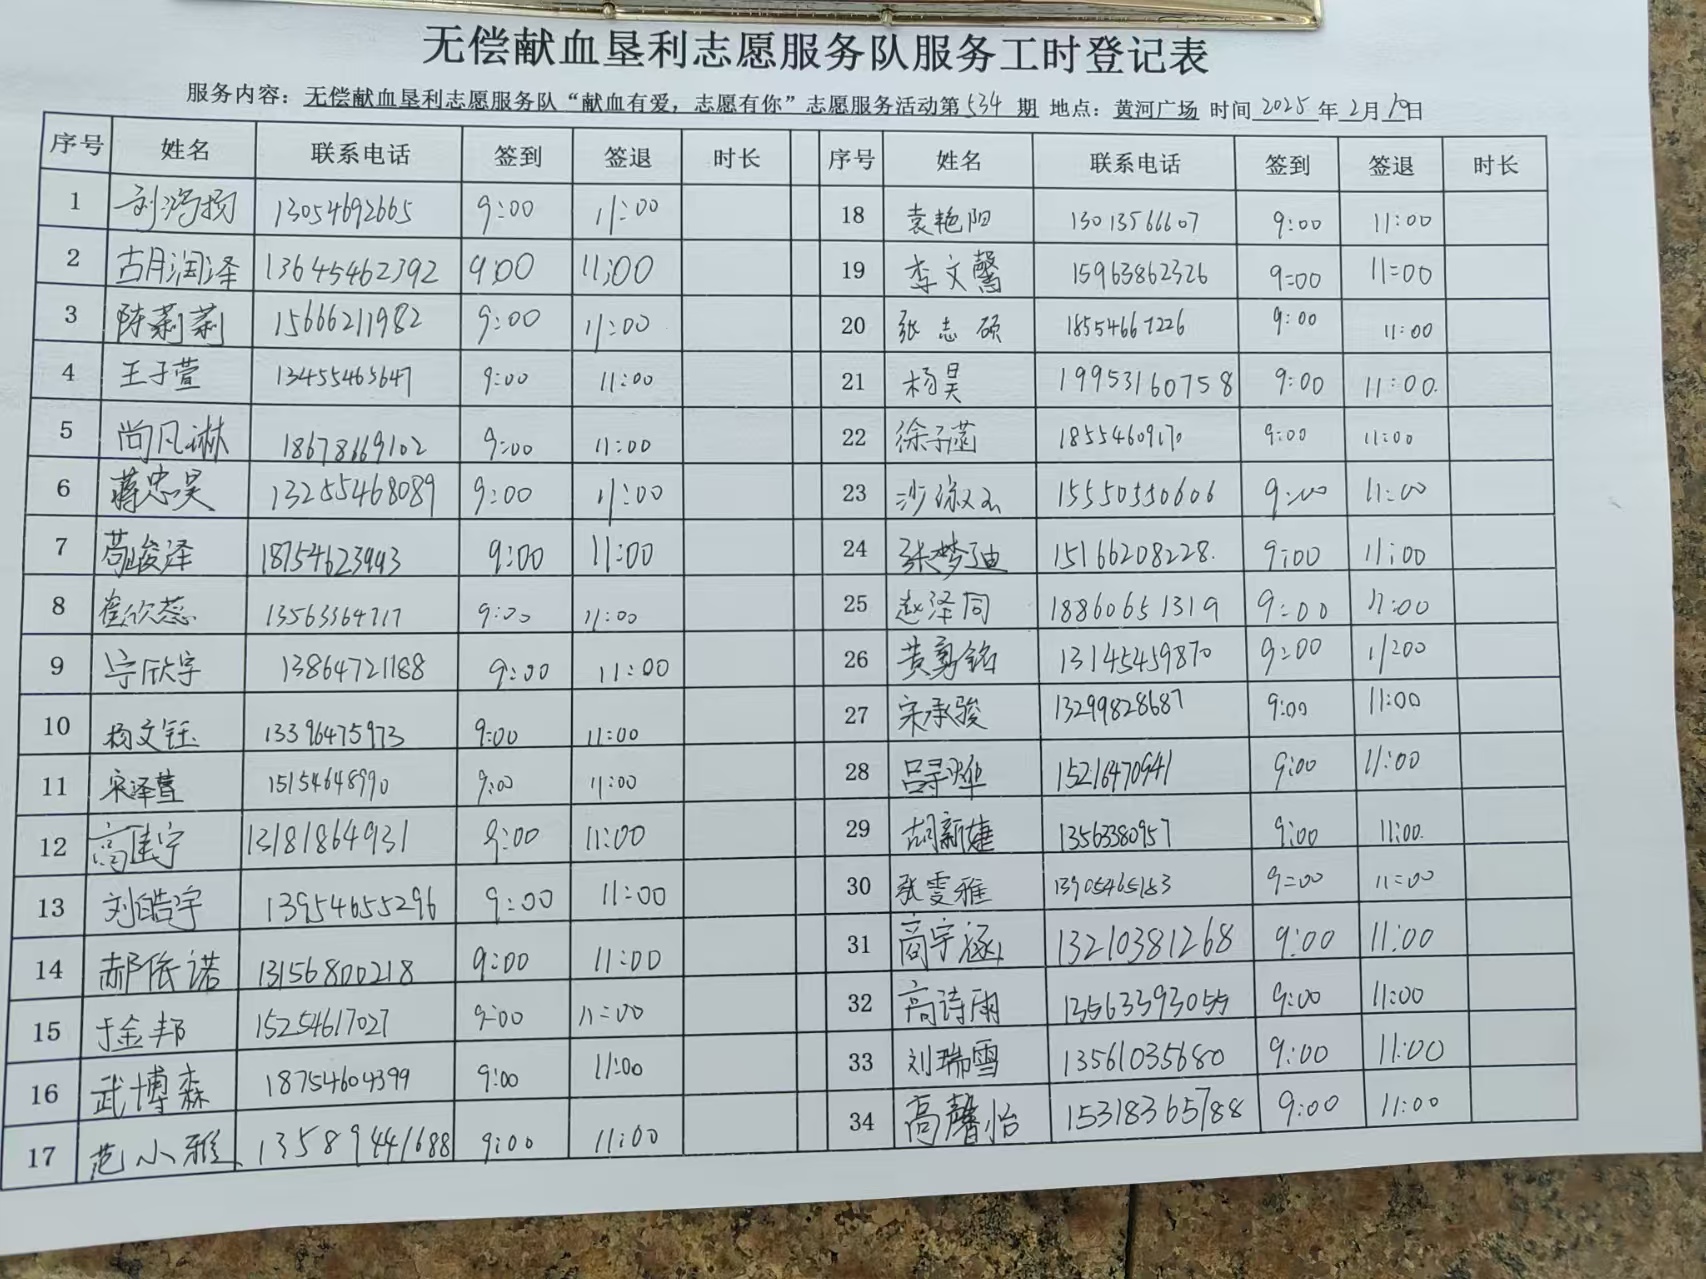 无偿献血垦利志愿服务队服务工时登记表
服务内容：无偿献血垦利志愿服务队“献血有爱，志愿有你”志愿服务活动第534期 地点：黄河广场 时间2025年2月19日
序号 姓名 联系电话 签到 签退 时长 序号 姓名 联系电话 签到 签退 时长
1 刘鸿扬 13054692665 9:00 11:00 18 袁艳阳 13013566607 9:00 11:00
2 胡润泽 13645462392 9:00 11:00 19 李文馨 15963862326 9:00 11:00
3 陈莉莉 15666211982 9:00 11:00 20 张志硕 18554667226 9:00 11:00
4 王子萱 13455465647 9:00 11:00 21 杨昊 19953160758 9:00 11:00
5 尚凡琳 18678669102 9:00 11:00 22 徐子菡 18554609170 9:00 11:00
6 蒋忠昊 13255468089 9:00 11:00 23 15550550606 9:00 11:00
7 苟峻泽 18754623993 9:00 11:00 24 张梦迪 15166208228 9:00 11:00
8 崔欣蕊 13563364717 9:00 11:00 25 赵泽同 18860651319 9:00 11:00
9 宁欣宇 13864721188 9:00 11:00 26 黄勇铭 13145459870 9:00 11:00
10 杨文钰 13396475973 9:00 11:00 27 宋承骏 13299828687 9:00 11:00
11 宋泽萱 15154648990 9:00 11:00 28 15216470941 9:00 11:00
12 高佳宁 13181864931 9:00 11:00 29 胡新婕 13563380957 9:00 11:00
13 刘皓宇 13954655296 9:00 11:00 30 张雯雅 13905465183 9:00 11:00
14 郝依诺 13156800218 9:00 11:00 31 高宇涵 13210381268 9:00 11:00
15 于金邦 15254617027 9:00 11:00 32 高诗雨 13563393055 9:00 11:00
16 武博森 18754604399 9:00 11:00 33 刘瑞雪 13561035680 9:00 11:00
17 范小雅 13589441688 9:00 11:00 34 高馨怡 15318365788 9:00 11:00